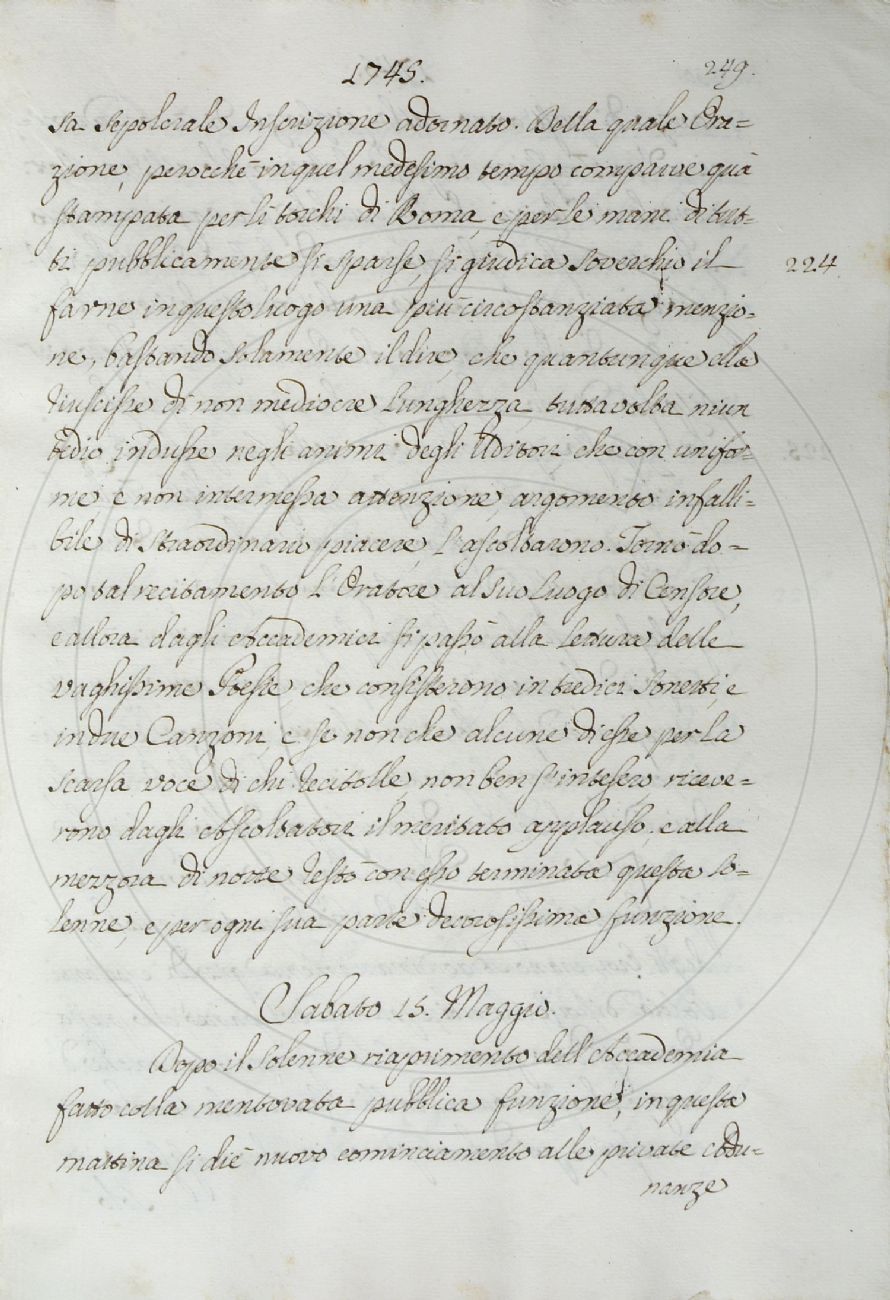 1745.
249.
sa sepolcrale Inscrizione adornato. Della quale Ora=
zione, perocchè in quel medesimo tempo comparve quà
stampata per li torchi di Roma, e per le mani di tut=
ti pubblicamente si sparse, si giudica soverchio il
224
farne in questo luogo una più circostanziata menzio=
ne, bastando solamente il dire, che quantunque ella
riuscisse di non mediocre lunghezza, tuttavolta niun
tedio indusse negli animi degli Uditori, che con unifor=
me, e non intermessa attenzione, argomento infalli=
bile di straordinario piacere, l'ascoltarono. Tornò do=
po tal recitamento l'Oratore al suo luogo di Censore,
e allora dagli Accademici si passò alla lettura delle
vaghissime Poesie, che consisterono in tredici Sonetti, e
in due Canzoni, e se non che alcune di esse per la
scarsa voce di chi recitolle non ben s'intesero riceve=
rono dagli Ascoltatori il meritato applauso, e alla
mezzora di notte restò con esso terminata questa so=
lenne, e per ogni sua parte decorosissima funzione.
Sabato 15. Maggio.
Dopo il solenne riaprimento dell'Accademia
fatto colla mentovata pubblica funzione, in questa
mattina si diè nuovo cominciamento alle private Adu=
nanze